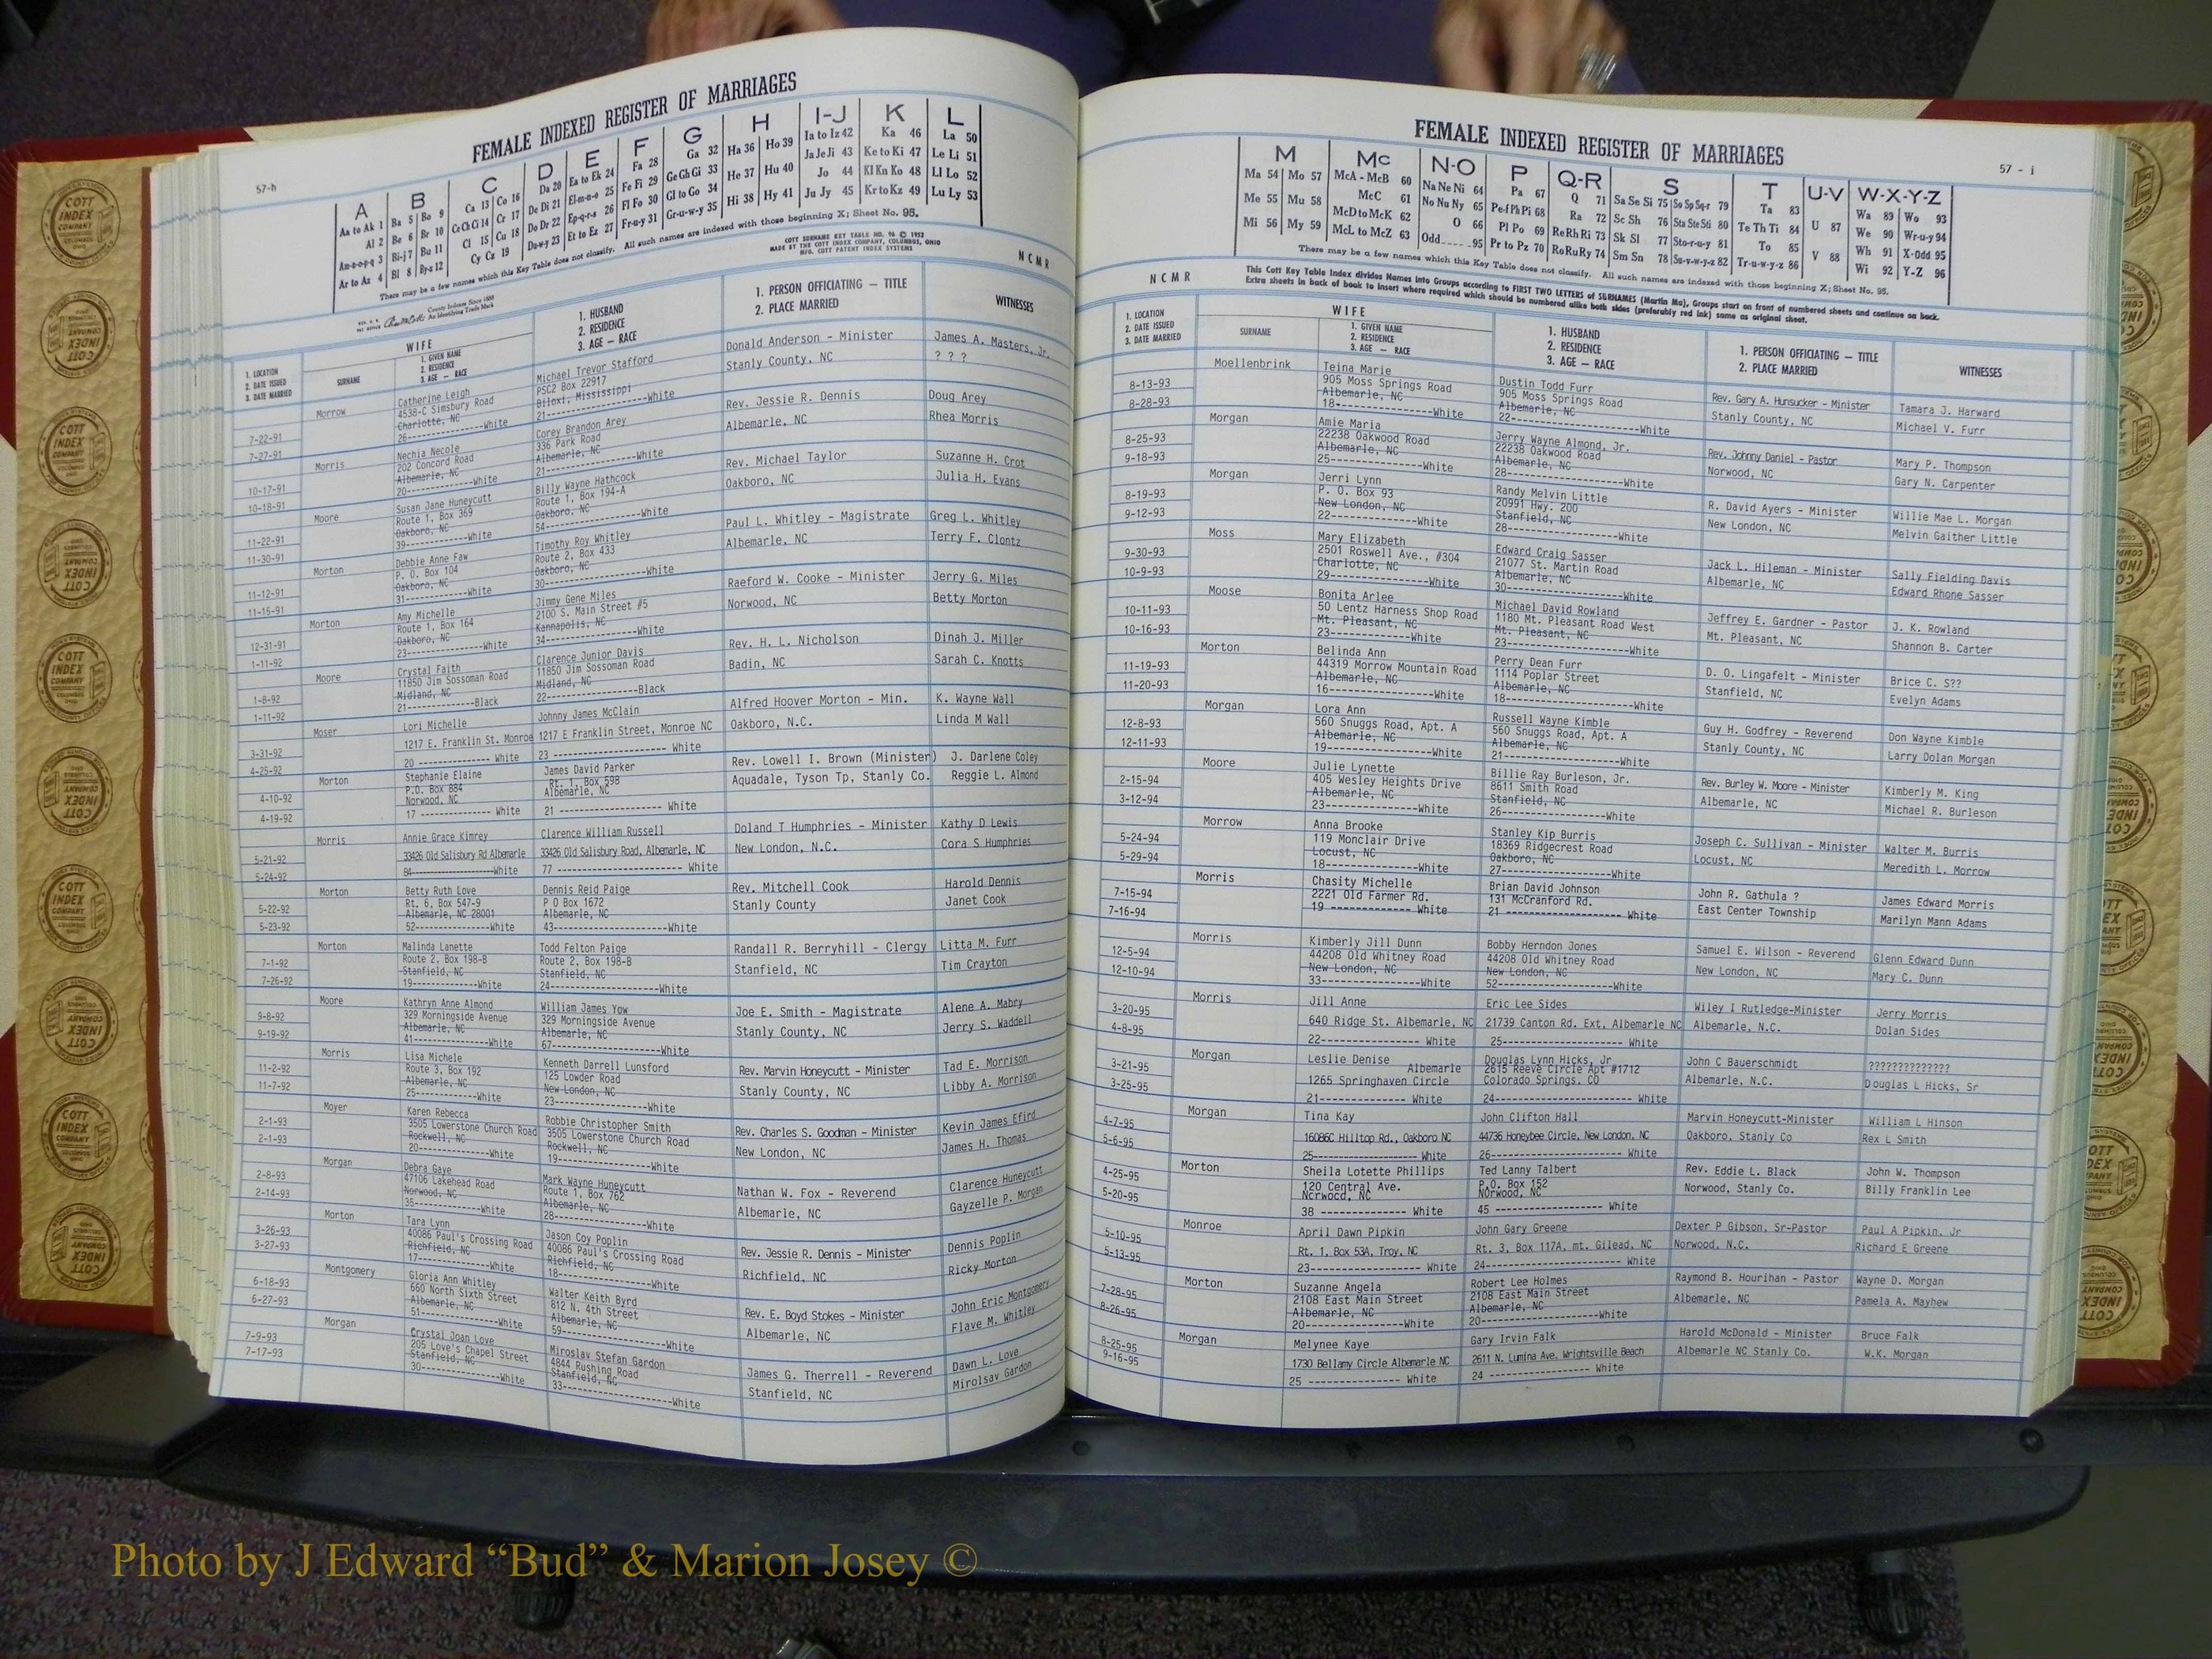 FEMALE INDEXED REGISTER OF MARRIAGES
57-h
A
Aa to Ak 1
Al 2
Am-n-o-p-q 3
Ar to Az 4
B
Ba 5 Bo 9
Be 6 Br 10
Bi-j 7 Bu 11
Bl 8 By-z 12
C
Ca 13 Co 16
Ce Ch Ci 14 Cr 17
Cl 15 Cu 18
Cy Cz 19
D
Da 20
De Di 21
Do Dr 22
Du-w-y 23
E
Ea to Ek 24
El-m-n-o 25
Ep-q-r-s 26
Et to Ez 27
F
Fa 28
Fe Fi 29
Fl Fo 30
Fr-u-y 31
G
Ga 32
Ge Gh Gi 33
Gl to Go 34
Gr-u-w-y 35
H
Ha 36 Ho 39
He 37 Hu 40
Hi 38 Hy 41
I-J
Ia to Iz 42
Ja Je Ji 43
Jo 44
Ju Jy 45
K
Ka 46
Ke to Ki 47
Kl Kn Ko 48
Kr to Kz 49
L
La 50
Le Li 51
Ll Lo 52
Lu Ly 53
There may be a few names which this Key Table does not classify. All such names are indexed with those beginning X; Sheet No. 95.
COTT SURNAME KEY TABLE NO. 96 © 1952
MADE BY THE COTT INDEX COMPANY, COLUMBUS, OHIO
MFG. COTT PATENT INDEX SYSTEMS
County Indexes Since 1888
An Identifying Trade Mark
NCMR
1. LOCATION
2. DATE ISSUED
3. DATE MARRIED
WIFE
SURNAME
1. GIVEN NAME
2. RESIDENCE
3. AGE — RACE
1. HUSBAND
2. RESIDENCE
3. AGE — RACE
1. PERSON OFFICIATING — TITLE
2. PLACE MARRIED
WITNESSES
Morrow Catherine Leigh Michael Trevor Stafford Donald Anderson - Minister James A. Masters, Jr.
4538-C Simsbury Road PSC2 Box 22917 Stanly County, NC ? ? ?
7-22-91 Charlotte, NC Biloxi, Mississippi
7-27-91 26-------------White 21-------------White
Morris Nechia Necole Corey Brandon Arey Rev. Jessie R. Dennis Doug Arey
202 Concord Road 336 Park Road Albemarle, NC Rhea Morris
10-17-91 Albemarle, NC Albemarle, NC
10-18-91 20-------------White 21-------------White
Moore Susan Jane Huneycutt Billy Wayne Hathcock Rev. Michael Taylor Suzanne H. Crot
Route 1, Box 369 Route 1, Box 194-A Oakboro, NC Julia H. Evans
11-22-91 Oakboro, NC Oakboro, NC
11-30-91 39-------------White 54-------------White
Morton Debbie Anne Faw Timothy Roy Whitley Paul L. Whitley - Magistrate Greg L. Whitley
P. O. Box 104 Route 2, Box 433 Albemarle, NC Terry F. Clontz
11-12-91 Oakboro, NC Oakboro, NC
11-15-91 31-------------White 30-------------White
Morton Amy Michelle Jimmy Gene Miles Raeford W. Cooke - Minister Jerry G. Miles
Route 1, Box 164 2100 S. Main Street #5 Norwood, NC Betty Morton
12-31-91 Oakboro, NC Kannapolis, NC
1-11-92 23-------------White 34-------------White
Moore Crystal Faith Clarence Junior Davis Rev. H. L. Nicholson Dinah J. Miller
11850 Jim Sossoman Road 11850 Jim Sossoman Road Badin, NC Sarah C. Knotts
1-8-92 Midland, NC Midland, NC
1-11-92 21-------------Black 22-------------Black
Moser Lori Michelle Johnny James McClain Alfred Hoover Morton - Min. K. Wayne Wall
3-31-92 1217 E. Franklin St. Monroe 1217 E Franklin Street, Monroe NC Oakboro, N.C. Linda M Wall
4-25-92 20 ------------- White 23 ------------- White
Morton Stephanie Elaine James David Parker Rev. Lowell I. Brown (Minister) J. Darlene Coley
P.O. Box 884 Rt. 1, Box 598 Aquadale, Tyson Tp, Stanly Co. Reggie L. Almond
4-10-92 Norwood, NC Albemarle, NC
4-19-92 17 ------------- White 21 ------------- White
Morris Annie Grace Kimrey Clarence William Russell Doland T Humphries - Minister Kathy D Lewis
5-21-92 33426 Old Salisbury Rd Albemarle 33426 Old Salisbury Road, Albemarle, NC New London, N.C. Cora S Humphries
5-24-92 84-------------White 77 ------------- White
Morton Betty Ruth Love Dennis Reid Paige Rev. Mitchell Cook Harold Dennis
5-22-92 Rt. 6, Box 547-9 P O Box 1672 Stanly County Janet Cook
5-23-92 Albemarle, NC 28001 Albemarle, NC
52-------------White 43-------------White
Morton Malinda Lanette Todd Felton Paige Randall R. Berryhill - Clergy Litta M. Furr
7-1-92 Route 2, Box 198-B Route 2, Box 198-B Stanfield, NC Tim Crayton
7-26-92 Stanfield, NC Stanfield, NC
19-------------White 24-------------White
Moore Kathryn Anne Almond William James Yow Joe E. Smith - Magistrate Alene A. Mabry
9-8-92 329 Morningside Avenue 329 Morningside Avenue Stanly County, NC Jerry S. Waddell
9-19-92 Albemarle, NC Albemarle, NC
41-------------White 67-------------White
Morris Lisa Michele Kenneth Darrell Lunsford Rev. Marvin Honeycutt - Minister Tad E. Morrison
11-2-92 Route 3, Box 192 125 Lowder Road Stanly County, NC Libby A. Morrison
11-7-92 Albemarle, NC New London, NC
25-------------White 23-------------White
Moyer Karen Rebecca Robbie Christopher Smith Rev. Charles S. Goodman - Minister Kevin James Efird
2-1-93 3505 Lowerstone Church Road 3505 Lowerstone Church Road New London, NC James H. Thomas
2-1-93 Rockwell, NC Rockwell, NC
20-------------White 19-------------White
Morgan Debra Gaye Mark Wayne Huneycutt Nathan W. Fox - Reverend Clarence Huneycutt
2-8-93 47106 Lakehead Road Route 1, Box 762 Albemarle, NC Gayzelle P. Morgan
2-14-93 Norwood, NC Albemarle, NC
35-------------White 28-------------White
Morton Tara Lynn Jason Coy Poplin Rev. Jessie R. Dennis - Minister Dennis Poplin
3-26-93 40086 Paul's Crossing Road 40086 Paul's Crossing Road Richfield, NC Ricky Morton
3-27-93 Richfield, NC Richfield, NC
17-------------White 18-------------White
Montgomery Gloria Ann Whitley Walter Keith Byrd Rev. E. Boyd Stokes - Minister John Eric Montgomery
6-18-93 660 North Sixth Street 812 N. 4th Street Albemarle, NC Flave M. Whitley
6-27-93 Albemarle, NC Albemarle, NC
51-------------White 59-------------White
Morgan Crystal Joan Love Miroslav Stefan Gardon James G. Therrell - Reverend Dawn L. Love
7-9-93 205 Love's Chapel Street 4844 Rushing Road Stanfield, NC Mirolsav Gardon
7-17-93 Stanfield, NC Stanfield, NC
30-------------White 33-------------White
FEMALE INDEXED REGISTER OF MARRIAGES
57 - i
M
Ma 54 Mo 57
Me 55 Mu 58
Mi 56 My 59
Mc
McA - McB 60
McC 61
McD to McK 62
McL to McZ 63
N-O
Na Ne Ni 64
No Nu Ny 65
O 66
Odd 95
P
Pa 67
Pe-f Ph Pi 68
Pl Po 69
Pr to Pz 70
Q-R
Q 71
Ra 72
Re Rh Ri 73
Ro Ru Ry 74
S
Sa Se Si 75 So Sp Sq-r 79
Sc Sh 76 Sta Ste Sti 80
Sk Sl 77 Sto-r-u-y 81
Sm Sn 78 Su-v-w-y-z 82
T
Ta 83
Te Th Ti 84
To 85
Tr-u-w-y-z 86
U-V
U 87
V 88
W-X-Y-Z
Wa 89 Wo 93
We 90 Wr-u-y 94
Wh 91 X-Odd 95
Wi 92 Y-Z 96
There may be a few names which this Key Table does not classify. All such names are indexed with those beginning X; Sheet No. 95.
NCMR
This Cott Key Table Index divides Names into Groups according to FIRST TWO LETTERS of SURNAMES (Martin Ma), Groups start on front of numbered sheets and continue on back.
Extra sheets in back of book to insert where required which should be numbered alike both sides (preferably red ink) same as original sheet.
1. LOCATION
2. DATE ISSUED
3. DATE MARRIED
WIFE
SURNAME
1. GIVEN NAME
2. RESIDENCE
3. AGE — RACE
1. HUSBAND
2. RESIDENCE
3. AGE — RACE
1. PERSON OFFICIATING — TITLE
2. PLACE MARRIED
WITNESSES
Moellenbrink Teina Marie Dustin Todd Furr Rev. Gary A. Hunsucker - Minister Tamara J. Harward
8-13-93 905 Moss Springs Road 905 Moss Springs Road Stanly County, NC Michael V. Furr
8-28-93 Albemarle, NC Albemarle, NC
18-------------White 22-------------White
Morgan Amie Maria Jerry Wayne Almond, Jr. Rev. Johnny Daniel - Pastor Mary P. Thompson
8-25-93 22238 Oakwood Road 22238 Oakwood Road Norwood, NC Gary N. Carpenter
9-18-93 Albemarle, NC Albemarle, NC
25-------------White 28-------------White
Morgan Jerri Lynn Randy Melvin Little R. David Ayers - Minister Willie Mae L. Morgan
8-19-93 P. O. Box 93 20991 Hwy. 200 New London, NC Melvin Gaither Little
9-12-93 New London, NC Stanfield, NC
22-------------White 28-------------White
Moss Mary Elizabeth Edward Craig Sasser Jack L. Hileman - Minister Sally Fielding Davis
9-30-93 2501 Roswell Ave., #304 21077 St. Martin Road Albemarle, NC Edward Rhone Sasser
10-9-93 Charlotte, NC Albemarle, NC
29-------------White 30-------------White
Moose Bonita Arlee Michael David Rowland Jeffrey E. Gardner - Pastor J. K. Rowland
10-11-93 50 Lentz Harness Shop Road 1180 Mt. Pleasant Road West Mt. Pleasant, NC Shannon B. Carter
10-16-93 Mt. Pleasant, NC Mt. Pleasant, NC
23-------------White 23-------------White
Morton Belinda Ann Perry Dean Furr D. O. Lingafelt - Minister Brice C. S??
11-19-93 44319 Morrow Mountain Road 1114 Poplar Street Stanfield, NC Evelyn Adams
11-20-93 Albemarle, NC Albemarle, NC
16-------------White 18-------------White
Morgan Lora Ann Russell Wayne Kimble Guy H. Godfrey - Reverend Don Wayne Kimble
12-8-93 560 Snuggs Road, Apt. A 560 Snuggs Road, Apt. A Stanly County, NC Larry Dolan Morgan
12-11-93 Albemarle, NC Albemarle, NC
19-------------White 21-------------White
Moore Julie Lynette Billie Ray Burleson, Jr. Rev. Burley W. Moore - Minister Kimberly M. King
2-15-94 405 Wesley Heights Drive 8611 Smith Road Albemarle, NC Michael R. Burleson
3-12-94 Albemarle, NC Stanfield, NC
23-------------White 26-------------White
Morrow Anna Brooke Stanley Kip Burris Joseph C. Sullivan - Minister Walter M. Burris
5-24-94 119 Monclair Drive 18369 Ridgecrest Road Locust, NC Meredith L. Morrow
5-29-94 Locust, NC Oakboro, NC
18-------------White 27-------------White
Morris Chasity Michelle Brian David Johnson John R. Gathula ? James Edward Morris
7-15-94 2221 Old Farmer Rd. 131 McCranford Rd. East Center Township Marilyn Mann Adams
7-16-94 19 ------------- White 21 ------------- White
Morris Kimberly Jill Dunn Bobby Herndon Jones Samuel E. Wilson - Reverend Glenn Edward Dunn
12-5-94 44208 Old Whitney Road 44208 Old Whitney Road New London, NC Mary C. Dunn
12-10-94 New London, NC New London, NC
33-------------White 52-------------White
Morris Jill Anne Eric Lee Sides Wiley I Rutledge-Minister Jerry Morris
3-20-95 640 Ridge St. Albemarle, NC 21739 Canton Rd. Ext, Albemarle NC Albemarle, N.C. Dolan Sides
4-8-95 22------------- White 25------------- White
Morgan Leslie Denise Douglas Lynn Hicks, Jr John C Bauerschmidt ??????????????
3-21-95 Albemarle 2615 Reeve Circle Apt #1712
3-25-95 1265 Springhaven Circle Colorado Springs, CO Albemarle, N.C. Douglas L Hicks, Sr
21------------- White 24------------- White
Morgan Tina Kay John Clifton Hall Marvin Honeycutt-Minister William L Hinson
4-7-95 16086C Hilltop Rd., Oakboro NC 44736 Honeybee Circle, New London, NC Oakboro, Stanly Co Rex L Smith
5-6-95 25------------- White 26------------- White
Morton Sheila Lotette Phillips Ted Lanny Talbert Rev. Eddie L. Black John W. Thompson
4-25-95 120 Central Ave. P.O. Box 152 Norwood, Stanly Co. Billy Franklin Lee
5-20-95 Norwood, NC Norwood, NC
38 ------------- White 45 ------------- White
Monroe April Dawn Pipkin John Gary Greene Dexter P Gibson, Sr-Pastor Paul A Pipkin, Jr
5-10-95 Rt. 1, Box 53A, Troy, NC Rt. 3, Box 117A, mt. Gilead, NC Norwood, N.C. Richard E Greene
5-13-95 23------------- White 24------------- White
Morton Suzanne Angela Robert Lee Holmes Raymond B. Hourihan - Pastor Wayne D. Morgan
7-28-95 2108 East Main Street 2108 East Main Street Albemarle, NC Pamela A. Mayhew
8-26-95 Albemarle, NC Albemarle, NC
20-------------White 20-------------White
Morgan Melynee Kaye Gary Irvin Falk Harold McDonald - Minister Bruce Falk
8-25-95 1730 Bellamy Circle Albemarle NC 2611 N. Lumina Ave. Wrightsville Beach Albemarle NC Stanly Co. W.K. Morgan
9-16-95 25 ------------- White 24 ------------- White
COTT INDEX COMPANY
Photo by J Edward “Bud” & Marion Josey ©